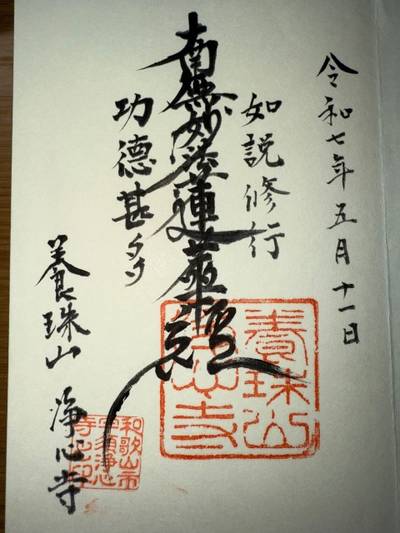 令和七年五月十一日
如説修行
南無妙法蓮華經
功徳甚多
養珠山 浄心寺
養珠山
浄心寺
和歌山市
宇須浄心
寺之印